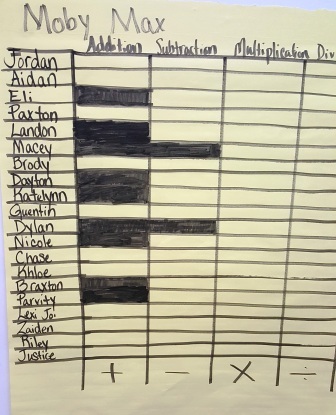 Moby Max
Addition Subtraction Multiplication Div
Jordan
Aidan
Eli
Paxton
Landon
Macey
Brody
Dayton
Katelynn
Quentin
Dylan
Nicole
Chase
Khloe
Braxton
Parvity
Lexi Jo.
Zaiden
Riley
Justice
+ - × ÷